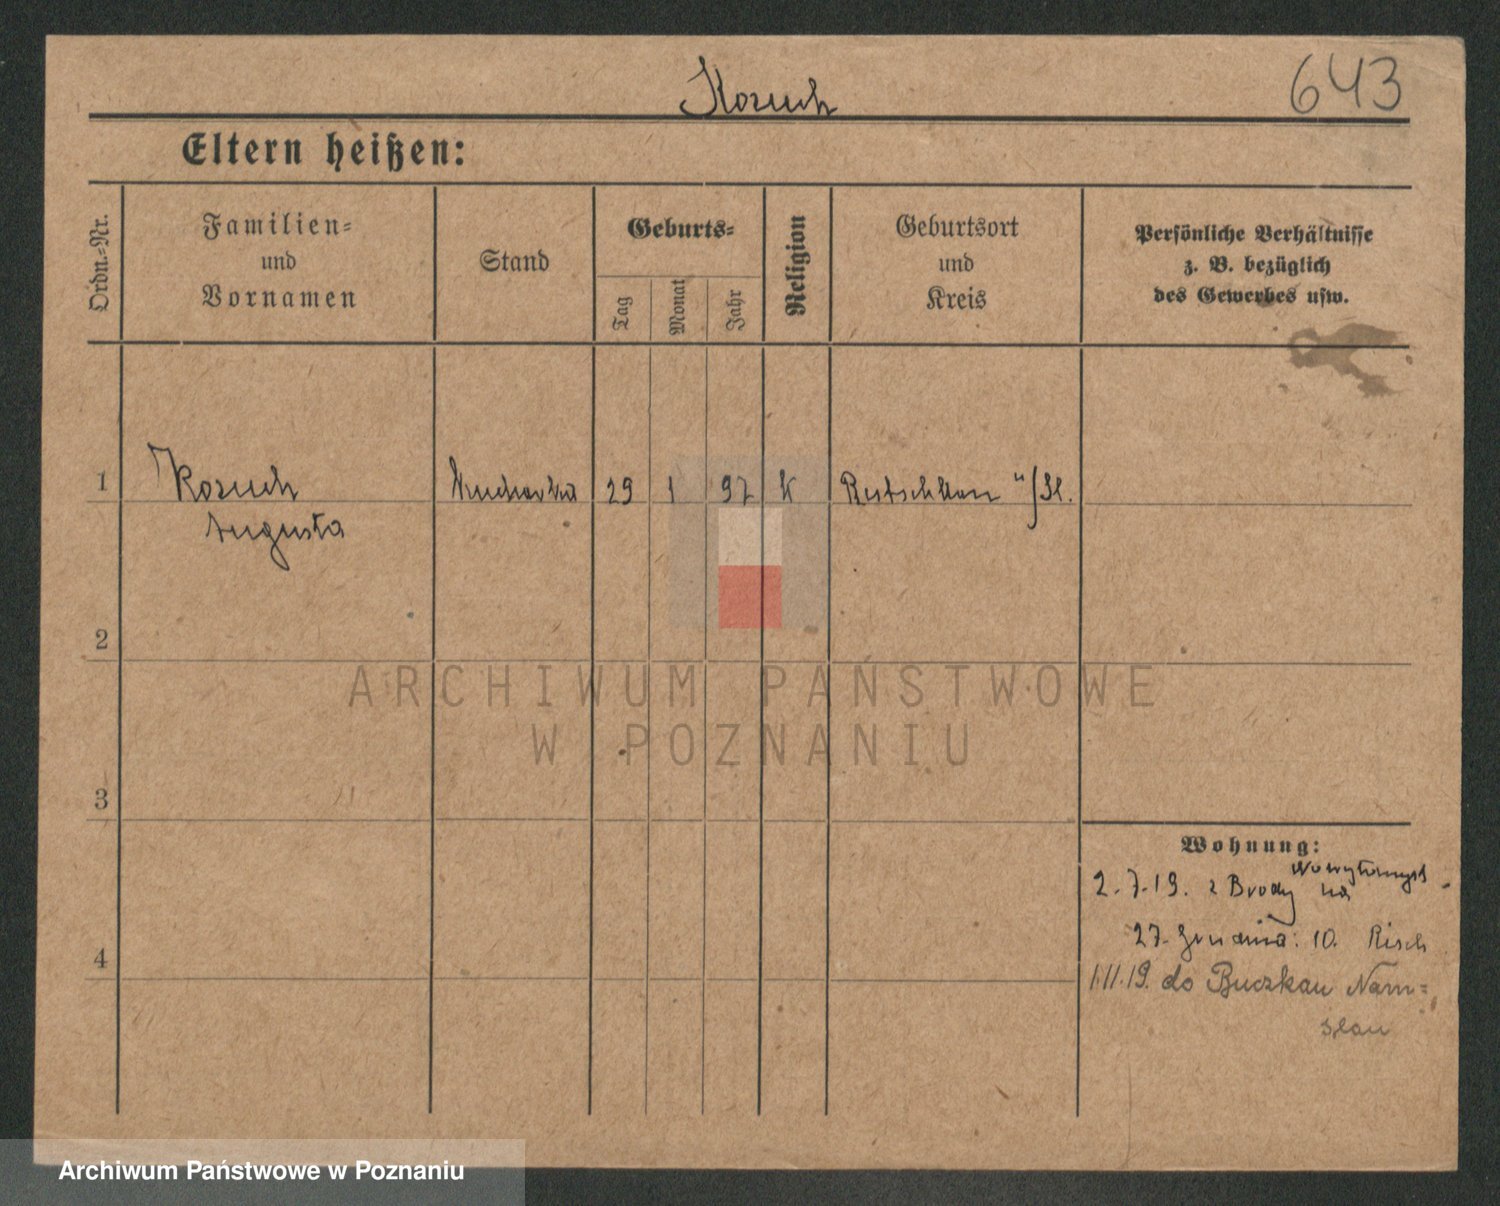 Koruch
643
Eltern heißen:
Ordn.-Nr.
Familien-
und
Vornamen
Stand
Geburts-
Tag
Monat
Jahr
Religion
Geburtsort
und
Kreis
Persönliche Verhältnisse
z. B. bezüglich
des Gewerbes usw.
1
Koruch
Augusta
Kucharka
29
1
97
k
/Sl.
2
3
4
Wohnung:
2.7.19. z Brody na Nowytomysl
27. Grudnia: 10. Risch
1.11.19. do Buczkau Nam=
slau
ARCHIWUM PAŃSTWOWE
W POZNANIU
Archiwum Państwowe w Poznaniu